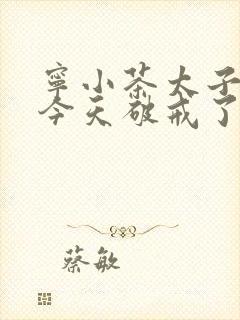 寧小茶太子
今天破戒了
蔡敏